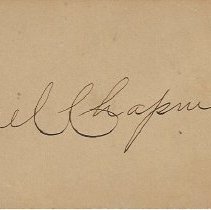 el Chapm